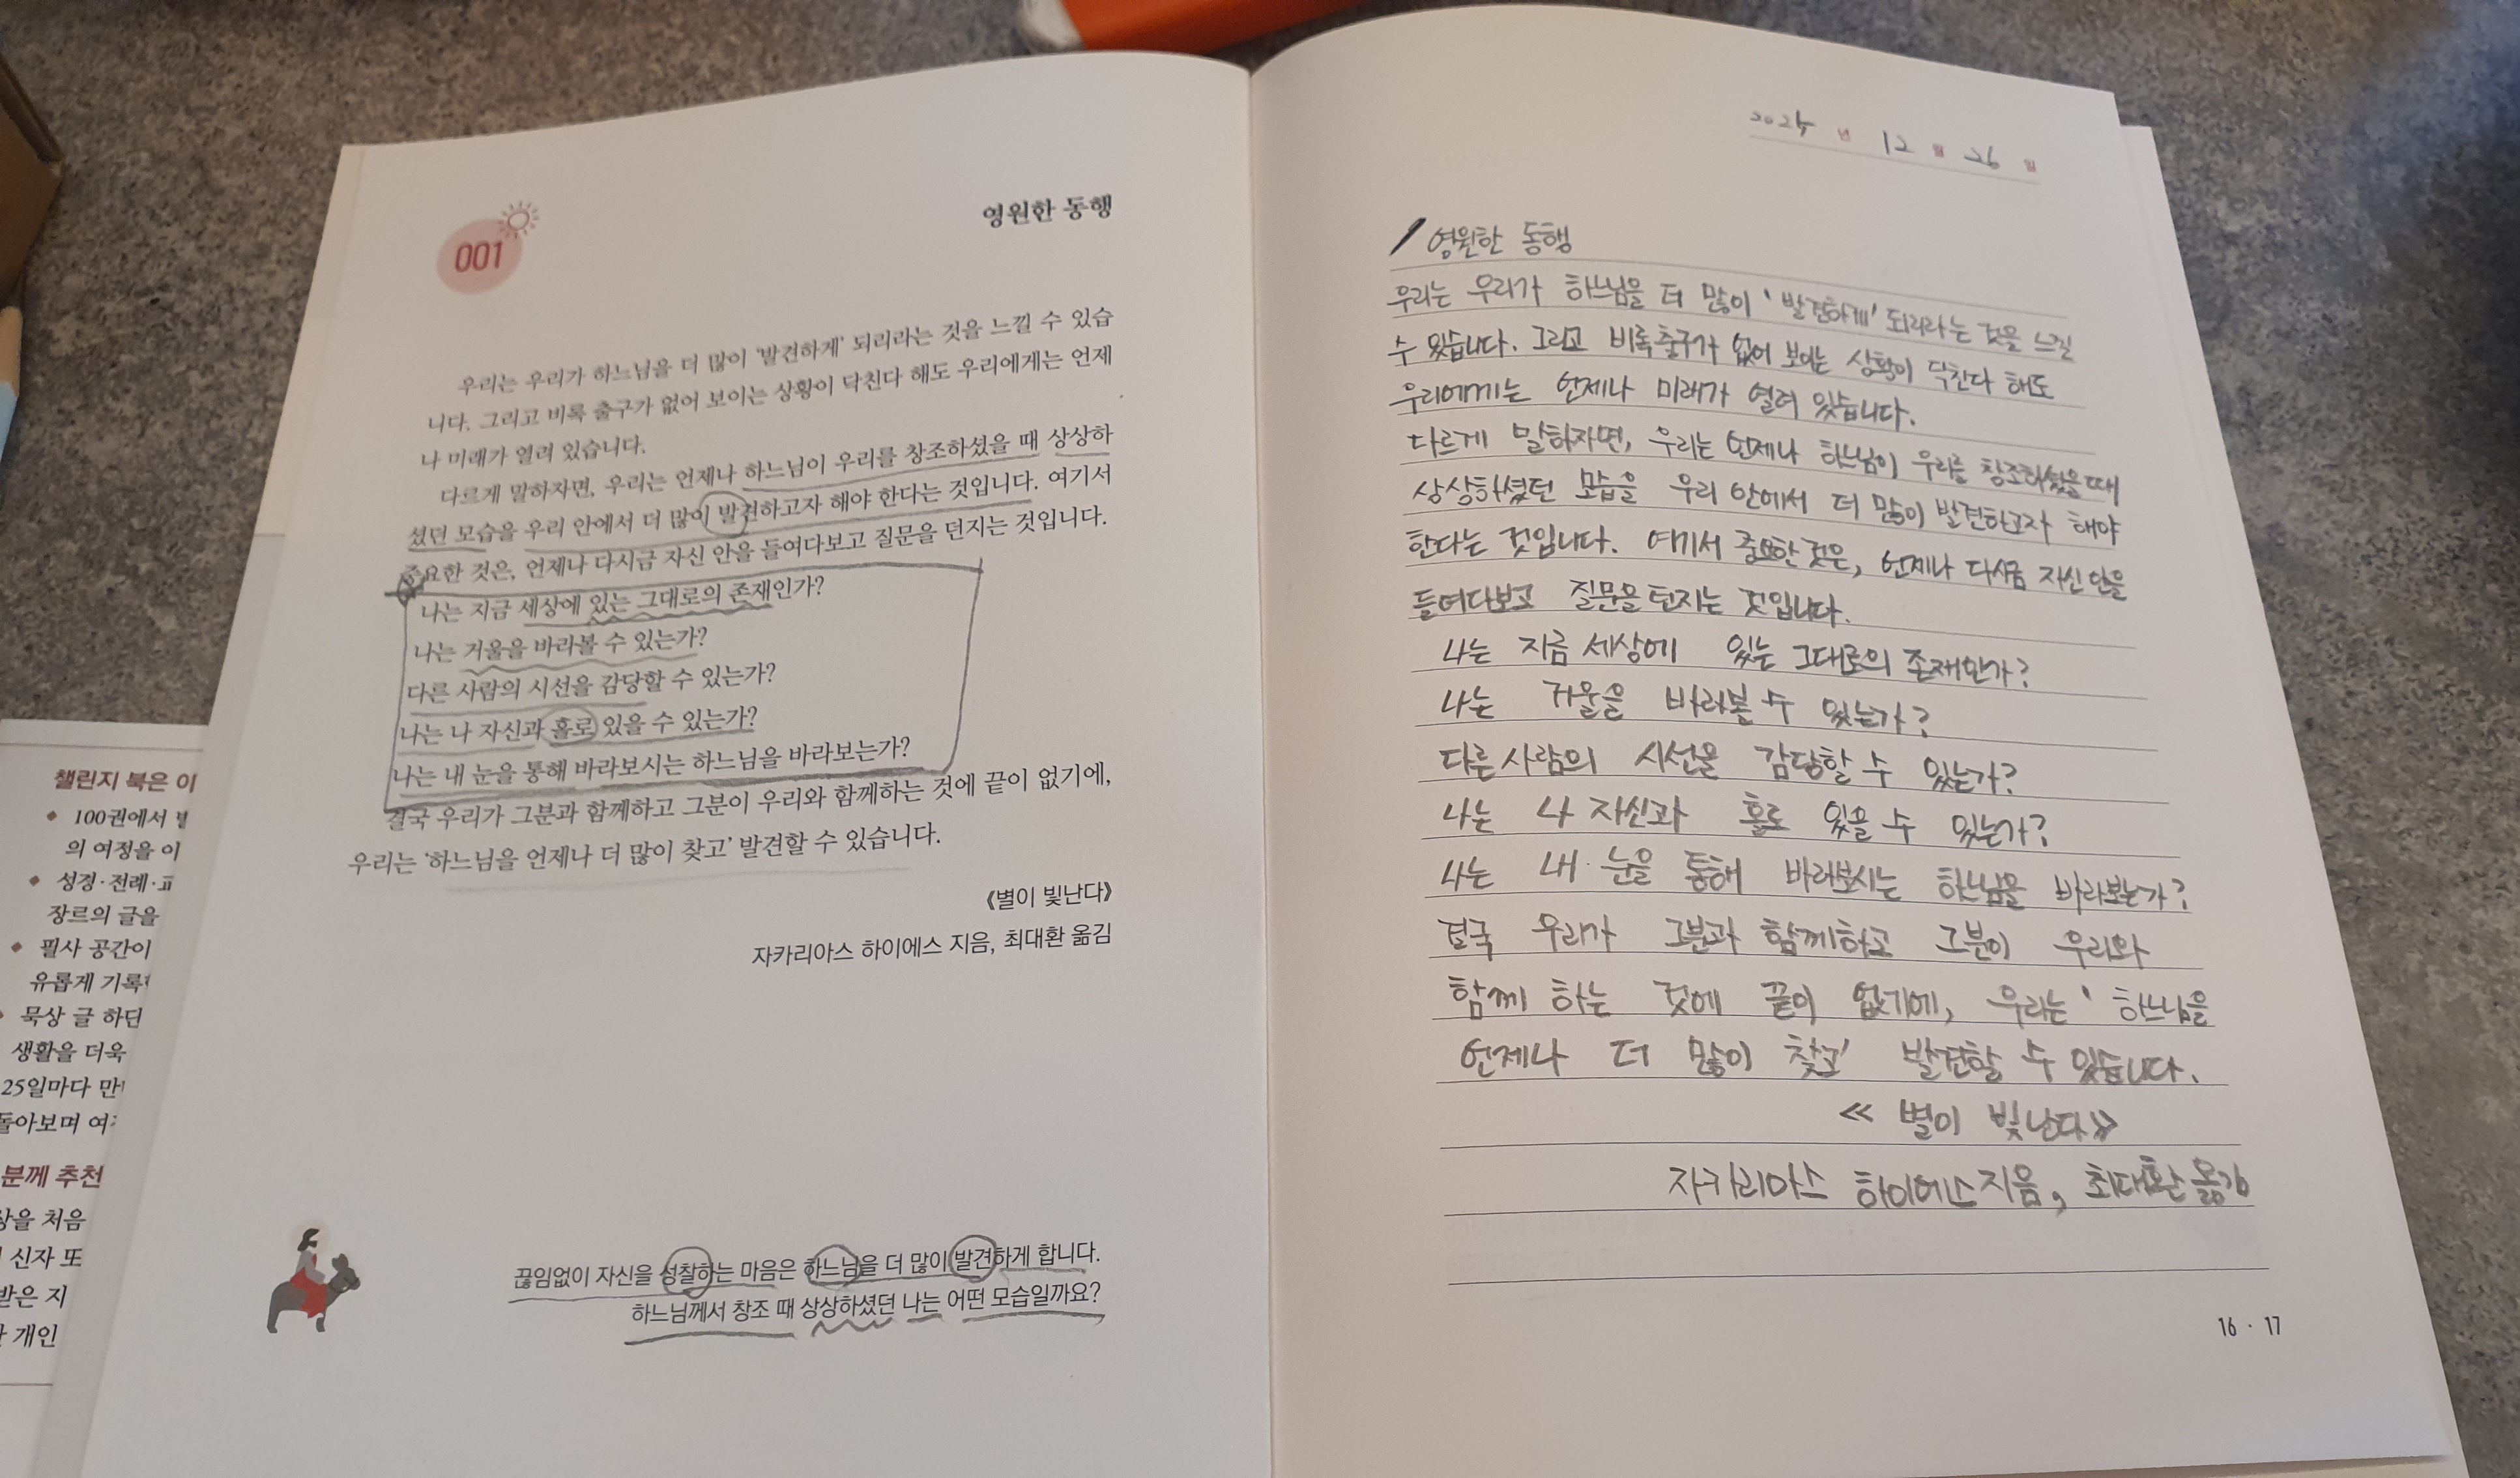 001
영원한 동행
우리는 우리가 하느님을 더 많이 '발견하게' 되리라는 것을 느낄 수 있습
니다. 그리고 비록 출구가 없어 보이는 상황이 닥친다 해도 우리에게는 언제
나 미래가 열려 있습니다.
다르게 말하자면, 우리는 언제나 하느님이 우리를 창조하셨을 때 상상하
셨던 모습을 우리 안에서 더 많이 발견하고자 해야 한다는 것입니다. 여기서
중요한 것은, 언제나 다시금 자신 안을 들여다보고 질문을 던지는 것입니다.
나는 지금 세상에 있는 그대로의 존재인가?
나는 거울을 바라볼 수 있는가?
다른 사람의 시선을 감당할 수 있는가?
나는 나 자신과 홀로 있을 수 있는가?
나는 내 눈을 통해 바라보시는 하느님을 바라보는가?
결국 우리가 그분과 함께하고 그분이 우리와 함께하는 것에 끝이 없기에,
우리는 '하느님을 언제나 더 많이 찾고' 발견할 수 있습니다.
《별이 빛난다》
자카리아스 하이에스 지음, 최대환 옮김
끊임없이 자신을 성찰하는 마음은 하느님을 더 많이 발견하게 합니다.
하느님께서 창조 때 상상하셨던 나는 어떤 모습일까요?
챌린지 북은 이
100권에서
의 여정을 이
성경·전례·교
장르의 글을
필사 공간이
유롭게 기록
묵상 글 하단
생활을 더욱
25일마다 만
돌아보며 여
분께 추천
상을 처음
신자 또
받은 지
개인
2024년 12월 26일
영원한 동행
우리는 우리가 하느님을 더 많이 '발견하게' 되리라는 것을 느낄
수 있습니다. 그리고 비록 출구가 없어 보이는 상황이 닥친다 해도
우리에게는 언제나 미래가 열려 있습니다.
다르게 말하자면, 우리는 언제나 하느님이 우리를 창조하셨을 때
상상하셨던 모습을 우리 안에서 더 많이 발견하고자 해야
한다는 것입니다. 여기서 중요한 것은, 언제나 다시금 자신 안을
들여다보고 질문을 던지는 것입니다.
나는 지금 세상에 있는 그대로의 존재인가?
나는 거울을 바라볼 수 있는가?
다른 사람의 시선을 감당할 수 있는가?
나는 나 자신과 홀로 있을 수 있는가?
나는 내 눈을 통해 바라보시는 하느님을 바라보는가?
결국 우리가 그분과 함께하고 그분이 우리와
함께 하는 것에 끝이 없기에, 우리는 '하느님을
언제나 더 많이 찾고' 발견할 수 있습니다.
《별이 빛난다》
자카리아스 하이에스 지음, 최대환 옮김
16 · 17